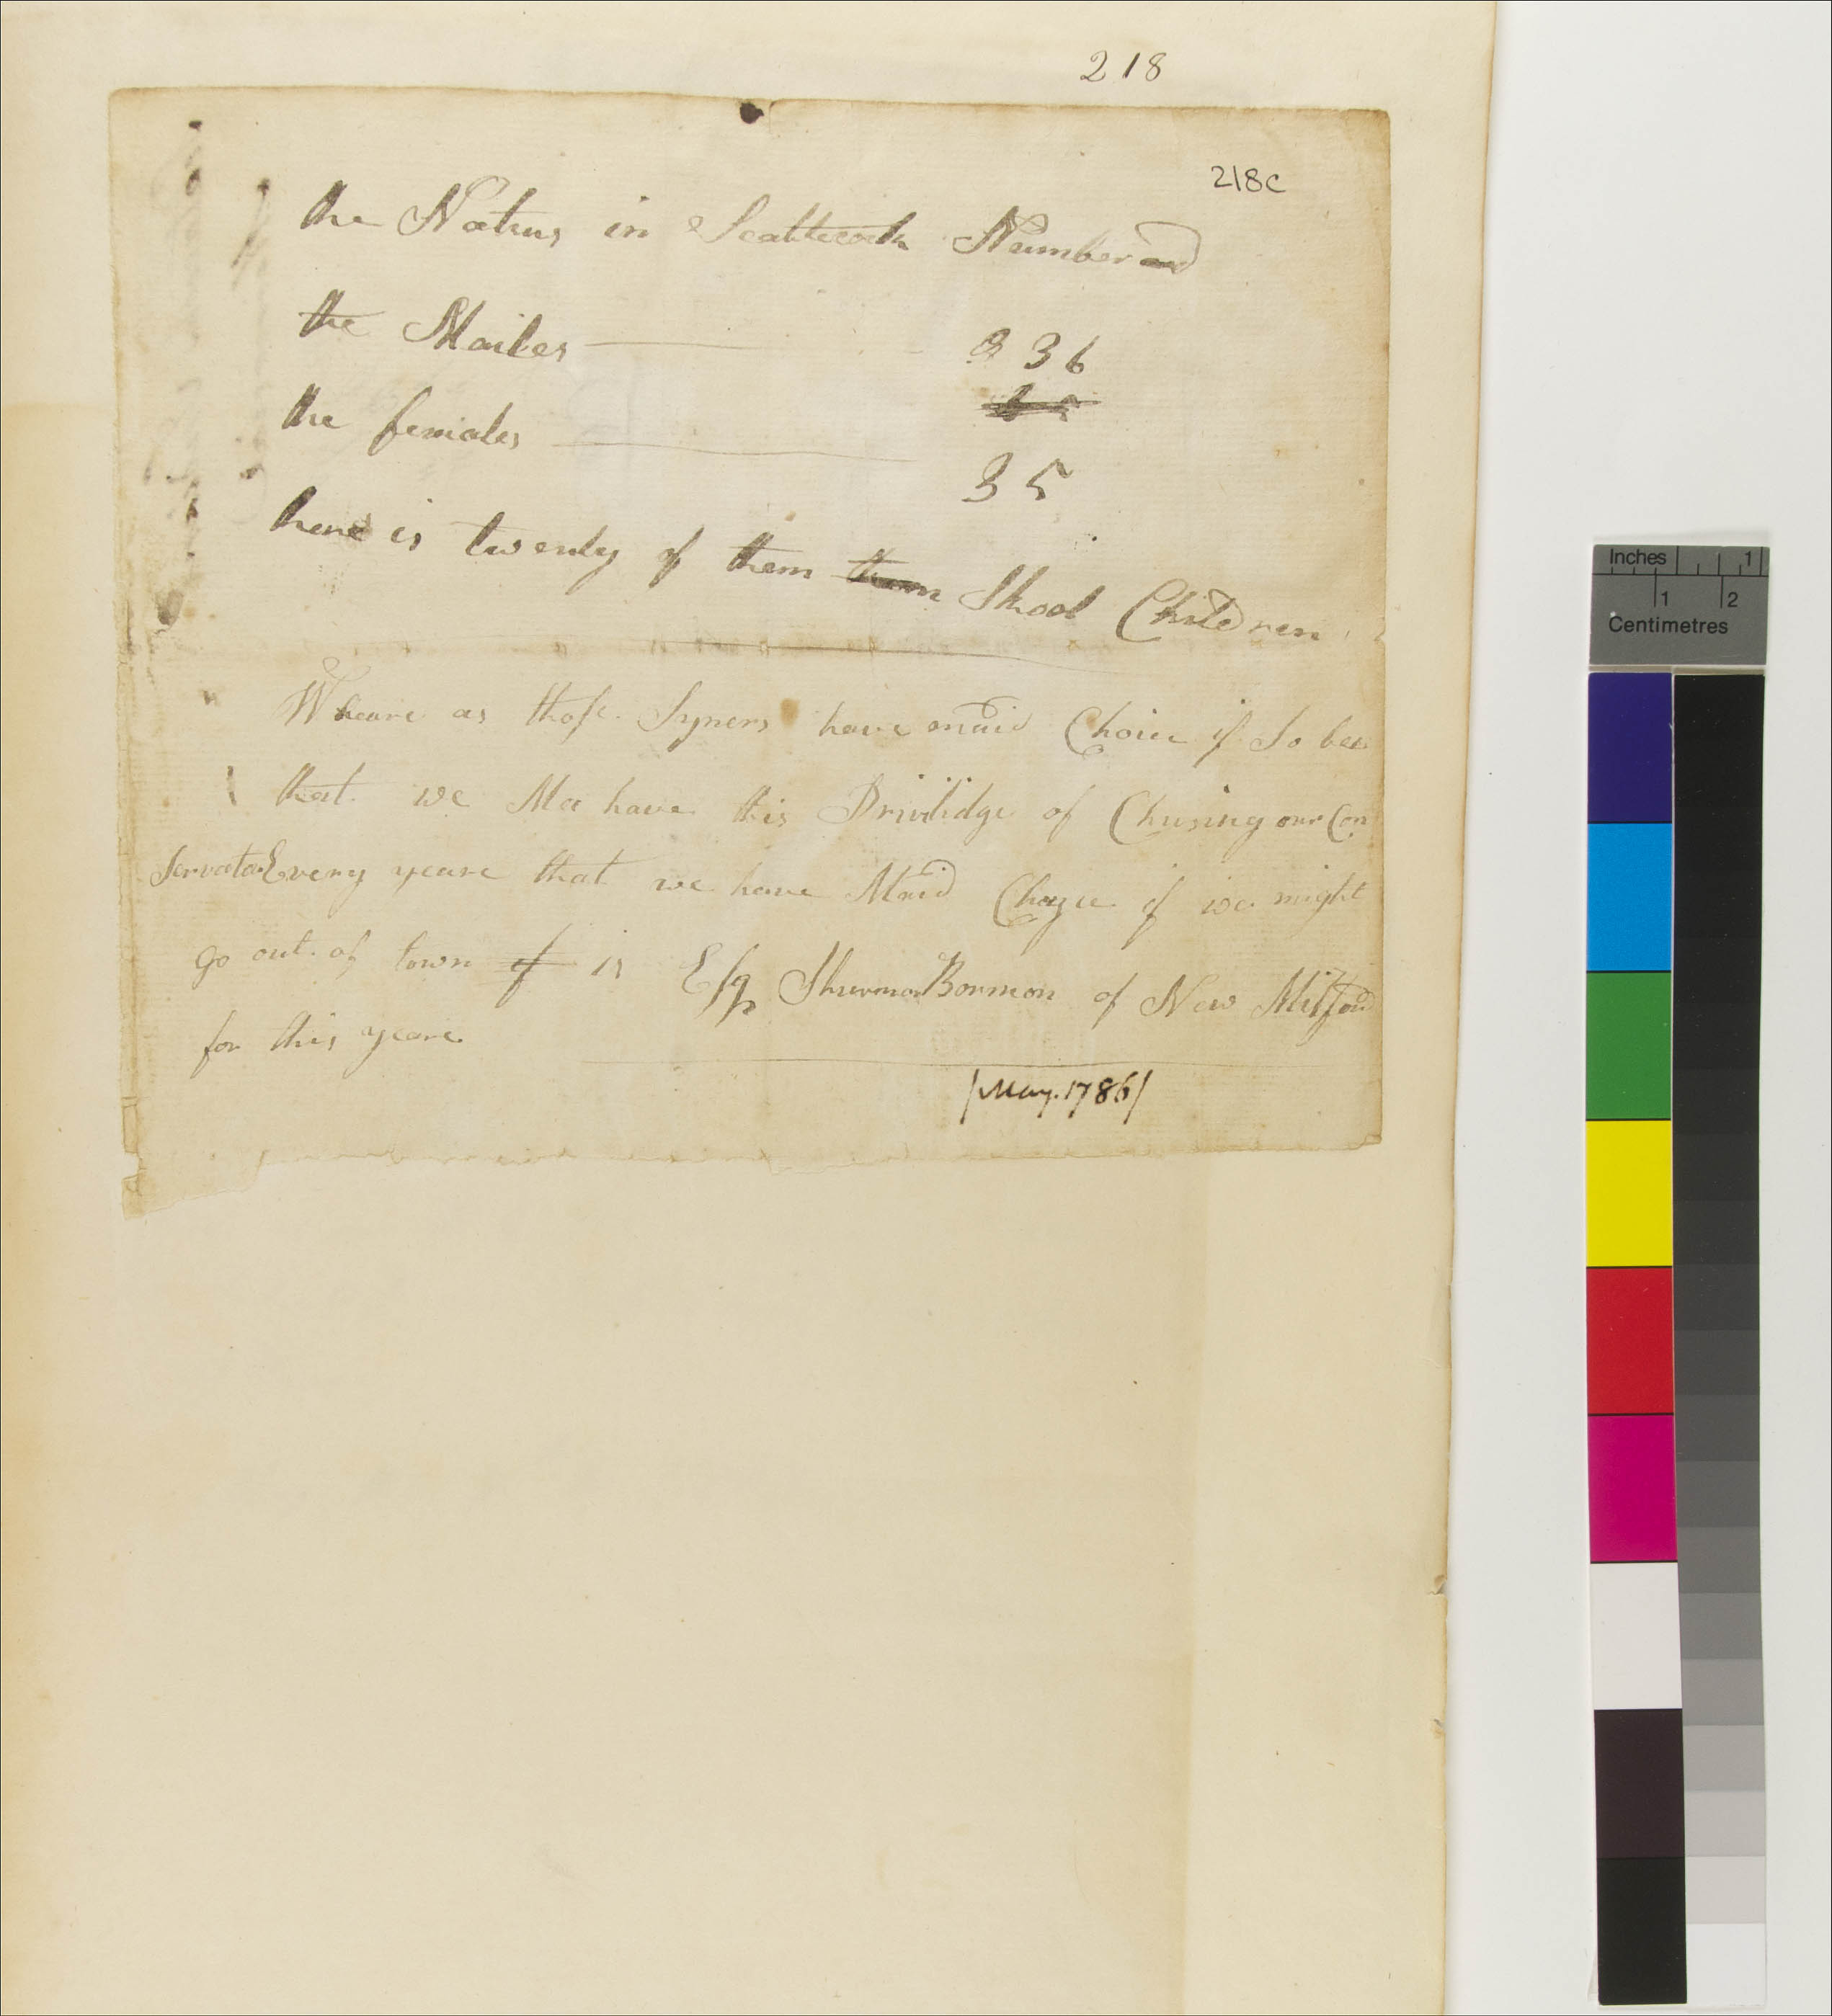 218
218c
the Natives in Scatticock Numberd
the Mailes 36
the females
35
here is twenty of them them Skool Children
Wheare as those Syners have maid Choice if So bee
that we Ma have this Privilidge of Chusing our Con
servator Every yeare that we have Maid Choyce if we might
go out of town if is Esq Shurman Bormon of New Milford
for this yeare
|May. 1786|
Inches 1
1 2
Centimetres